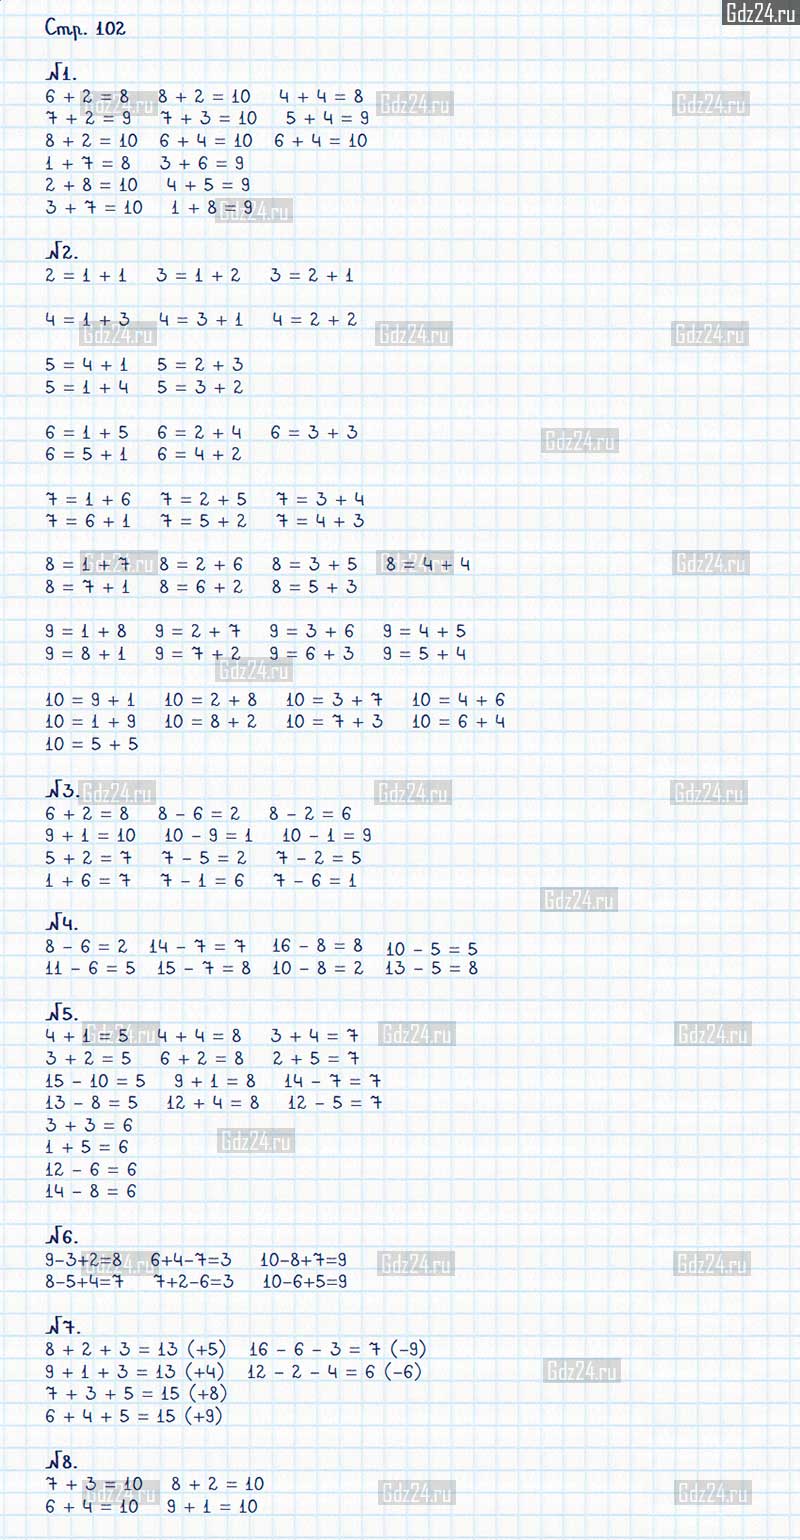 Gdz24.ru
Стр. 102
№1.
6 + 2 = 8 8 + 2 = 10 4 + 4 = 8
7 + 2 = 9 7 + 3 = 10 5 + 4 = 9
8 + 2 = 10 6 + 4 = 10 6 + 4 = 10
1 + 7 = 8 3 + 6 = 9
2 + 8 = 10 4 + 5 = 9
3 + 7 = 10 1 + 8 = 9
№2.
2 = 1 + 1 3 = 1 + 2 3 = 2 + 1
4 = 1 + 3 4 = 3 + 1 4 = 2 + 2
5 = 4 + 1 5 = 2 + 3
5 = 1 + 4 5 = 3 + 2
6 = 1 + 5 6 = 2 + 4 6 = 3 + 3
6 = 5 + 1 6 = 4 + 2
7 = 1 + 6 7 = 2 + 5 7 = 3 + 4
7 = 6 + 1 7 = 5 + 2 7 = 4 + 3
8 = 1 + 7 8 = 2 + 6 8 = 3 + 5 8 = 4 + 4
8 = 7 + 1 8 = 6 + 2 8 = 5 + 3
9 = 1 + 8 9 = 2 + 7 9 = 3 + 6 9 = 4 + 5
9 = 8 + 1 9 = 7 + 2 9 = 6 + 3 9 = 5 + 4
10 = 9 + 1 10 = 2 + 8 10 = 3 + 7 10 = 4 + 6
10 = 1 + 9 10 = 8 + 2 10 = 7 + 3 10 = 6 + 4
10 = 5 + 5
№3.
6 + 2 = 8 8 - 6 = 2 8 - 2 = 6
9 + 1 = 10 10 - 9 = 1 10 - 1 = 9
5 + 2 = 7 7 - 5 = 2 7 - 2 = 5
1 + 6 = 7 7 - 1 = 6 7 - 6 = 1
№4.
8 - 6 = 2 14 - 7 = 7 16 - 8 = 8 10 - 5 = 5
11 - 6 = 5 15 - 7 = 8 10 - 8 = 2 13 - 5 = 8
№5.
4 + 1 = 5 4 + 4 = 8 3 + 4 = 7
3 + 2 = 5 6 + 2 = 8 2 + 5 = 7
15 - 10 = 5 9 + 1 = 8 14 - 7 = 7
13 - 8 = 5 12 + 4 = 8 12 - 5 = 7
3 + 3 = 6
1 + 5 = 6
12 - 6 = 6
14 - 8 = 6
№6.
9-3+2=8 6+4-7=3 10-8+7=9
8-5+4=7 7+2-6=3 10-6+5=9
№7.
8 + 2 + 3 = 13 (+5) 16 - 6 - 3 = 7 (-9)
9 + 1 + 3 = 13 (+4) 12 - 2 - 4 = 6 (-6)
7 + 3 + 5 = 15 (+8)
6 + 4 + 5 = 15 (+9)
№8.
7 + 3 = 10 8 + 2 = 10
6 + 4 = 10 9 + 1 = 10